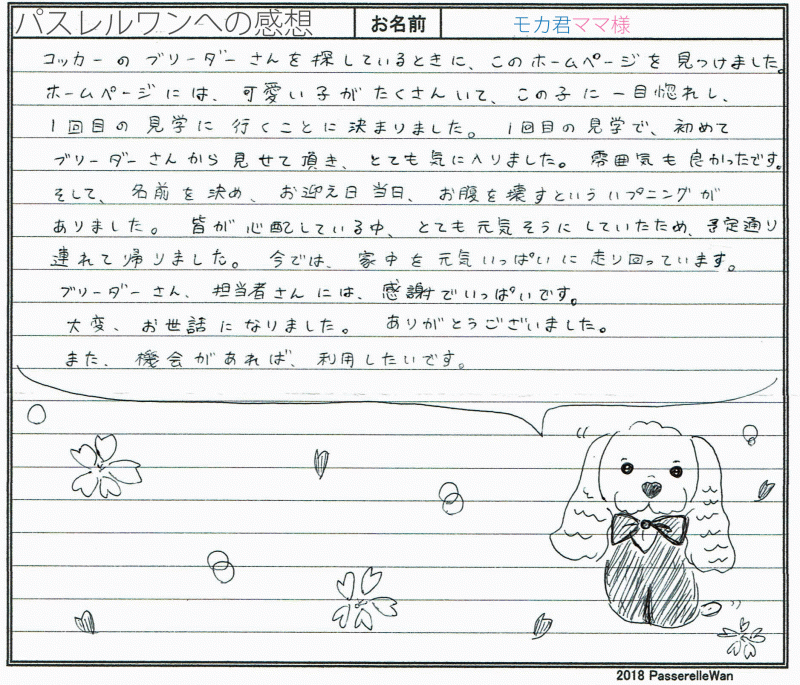 パスレルワンへの感想 お名前 モカ君ママ様
コッカーのブリーダーさんを探しているときに、このホームページを見つけました。
ホームページには、可愛い子がたくさんいて、この子に一目惚れし、
1回目の見学に行くことに決まりました。1回目の見学で、初めて
ブリーダーさんから見せて頂き、とても気に入りました。雰囲気も良かったです。
そして、名前を決め、お迎え日当日、お腹を壊すという ハプニングが
ありました。皆が心配している中、とても元気そうにしていたため、予定通り
連れて帰りました。今では、家中を元気いっぱいに走り回っています。
ブリーダーさん、担当者さんには、感謝でいっぱいです。
大変、お世話になりました。ありがとうございました。
また、機会があれば、利用したいです。
2018 PasserelleWan